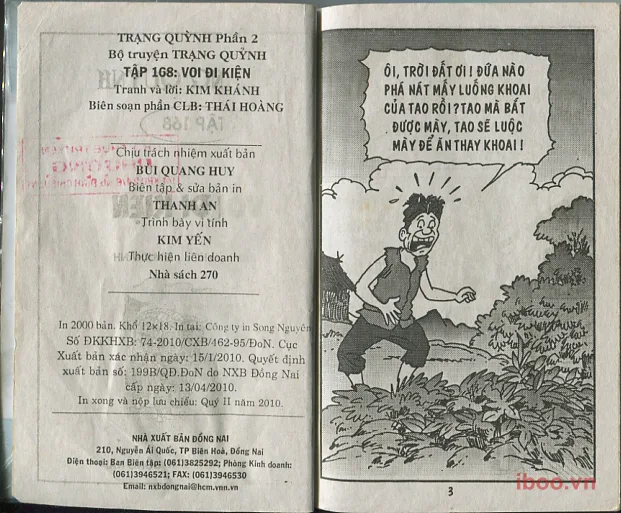 TRẠNG QUỲNH Phần 2
Bộ truyện TRẠNG QUỲNH
TẬP 168: VOI ĐI KIỆN
Tranh và lời: KIM KHÁNH
Biên soạn phần CLB: THÁI HOÀNG
TẬP 168
Chịu trách nhiệm xuất bản
BÙI QUANG HUY
Biên tập & sửa bản in
THANH AN
Trình bày vi tính
KIM YẾN
Thực hiện liên doanh
Nhà sách 270
In 2000 bản. Khổ 12x18. In tại: Công ty in Song Nguyên
Số ĐKKHXB: 74-2010/CXB/462-95/ĐoN. Cục
Xuất bản xác nhận ngày: 15/1/2010. Quyết định
xuất bản số: 199B/QĐ.ĐoN do NXB Đồng Nai
cấp ngày: 13/04/2010.
In xong và nộp lưu chiểu: Quý II năm 2010.
NHÀ XUẤT BẢN ĐỒNG NAI
210, Nguyễn Ái Quốc, TP Biên Hoà, Đồng Nai
Điện thoại: Ban Biên tập: (061)3825292; Phòng Kinh doanh:
(061)3946521; FAX: (061)3946530
Email: nxbdongnai@hcm.vnn.vn
ÔI, TRỜI ĐẤT ƠI! ĐỨA NÀO
PHÁ NÁT MẤY LUỐNG KHOAI
CỦA TAO RỒI? TAO MÀ BẮT
ĐƯỢC MÀY, TAO SẼ LUỘC
MÀY ĐỂ ĂN THAY KHOAI!
3
iboo.vn